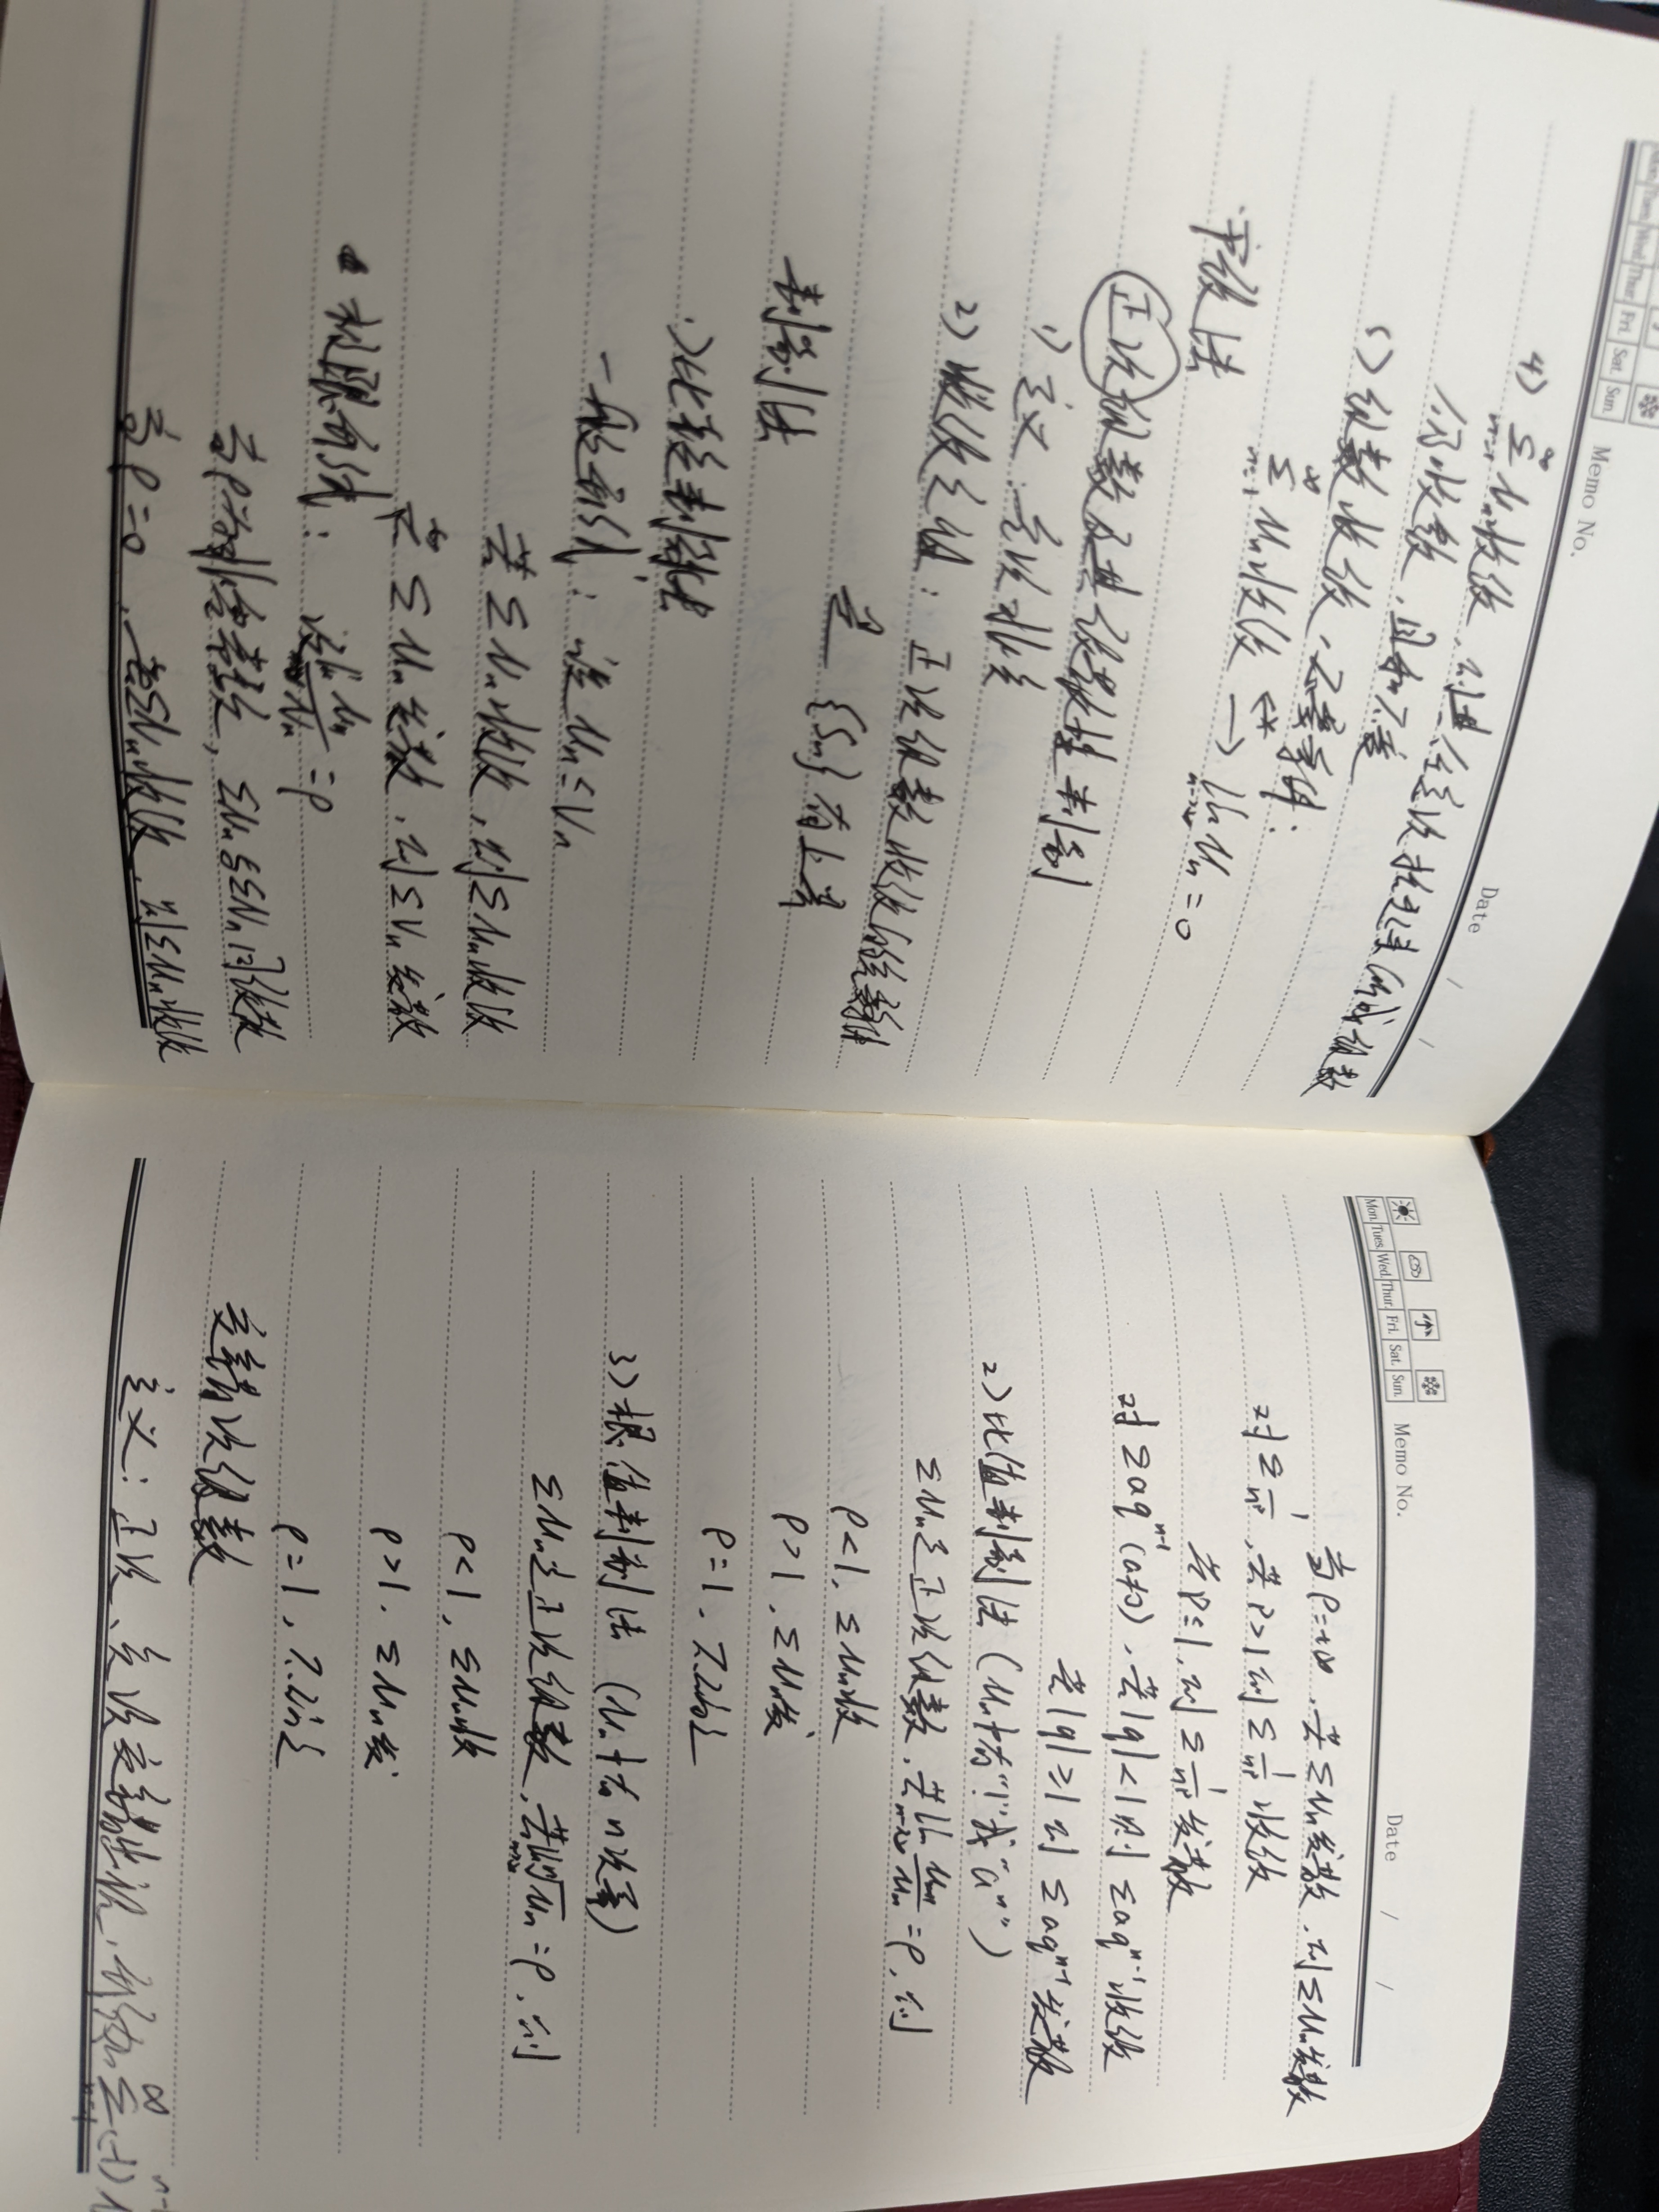 Mon. Tues. Wed. Thur. Fri. Sat. Sun.
Memo No.
Date / /
4) ∑(n=1→∞) Un收敛，则任意项括起来所成级数
仍收敛，且和不变
5) 级数收敛必要条件：
∑(n=1→∞) Un收敛 → lim(n→∞) Un = 0
正项级数及其敛散性判别
1) 定义
2) 收敛定理：正项级数收敛的
{Sn}有上界
判别法
1) 比较判别法
一般形式：设 Un ≤ Vn
若 ∑Vn收敛，则∑Un收敛
若 ∑Un发散，则∑Vn发散
极限形式： lim Un/Vn = ρ
∑Un与∑Vn同敛散
当ρ=0，若∑Vn收敛，则∑Un收敛
Mon. Tues. Wed. Thur. Fri. Sat. Sun.
Memo No.
Date / /
当ρ=+∞，若∑Vn发散，则∑Un发散
对∑1/n^p，若P>1则∑1/n^p收敛
若P≤1，则∑1/n^p发散
对∑aq^(n-1) (a≠0)，若|q|<1则∑aq^(n-1)收敛
若|q|≥1则∑aq^(n-1)发散
2) 比值判别法（Un中有“!”或“a^n”）
∑Un是正项级数，若lim(n→∞) Un+1/Un = ρ，则
ρ<1，∑Un收
ρ>1，∑Un发
ρ=1，不确定
3) 根值判别法（Un中有n次幂）
∑Un是正项级数，若lim(n→∞) ⁿ√Un = ρ，则
ρ<1，∑Un收
ρ>1，∑Un发
ρ=1，不确定
交错项级数
定义：正项、负项交错出现，形如∑(n=1→∞)(-1)^(n-1)